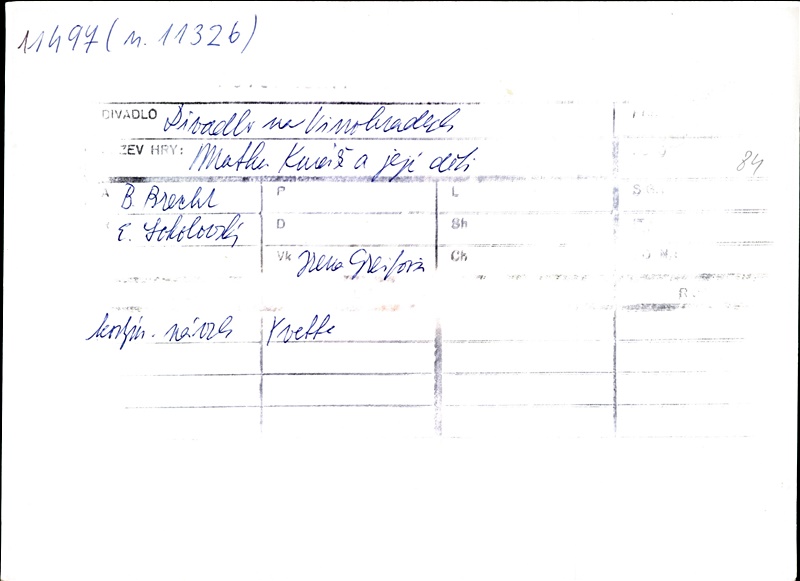 11497 (n. 11326)
DIVADLO Divadlo na Vinohradech
ZEV HRY: Matka Kuráž a její děti
84
A B. Brecht P L
E. Sokolovský D Sh
Vk Irena Greifová Ch
R.
kostým. návrh Yvette